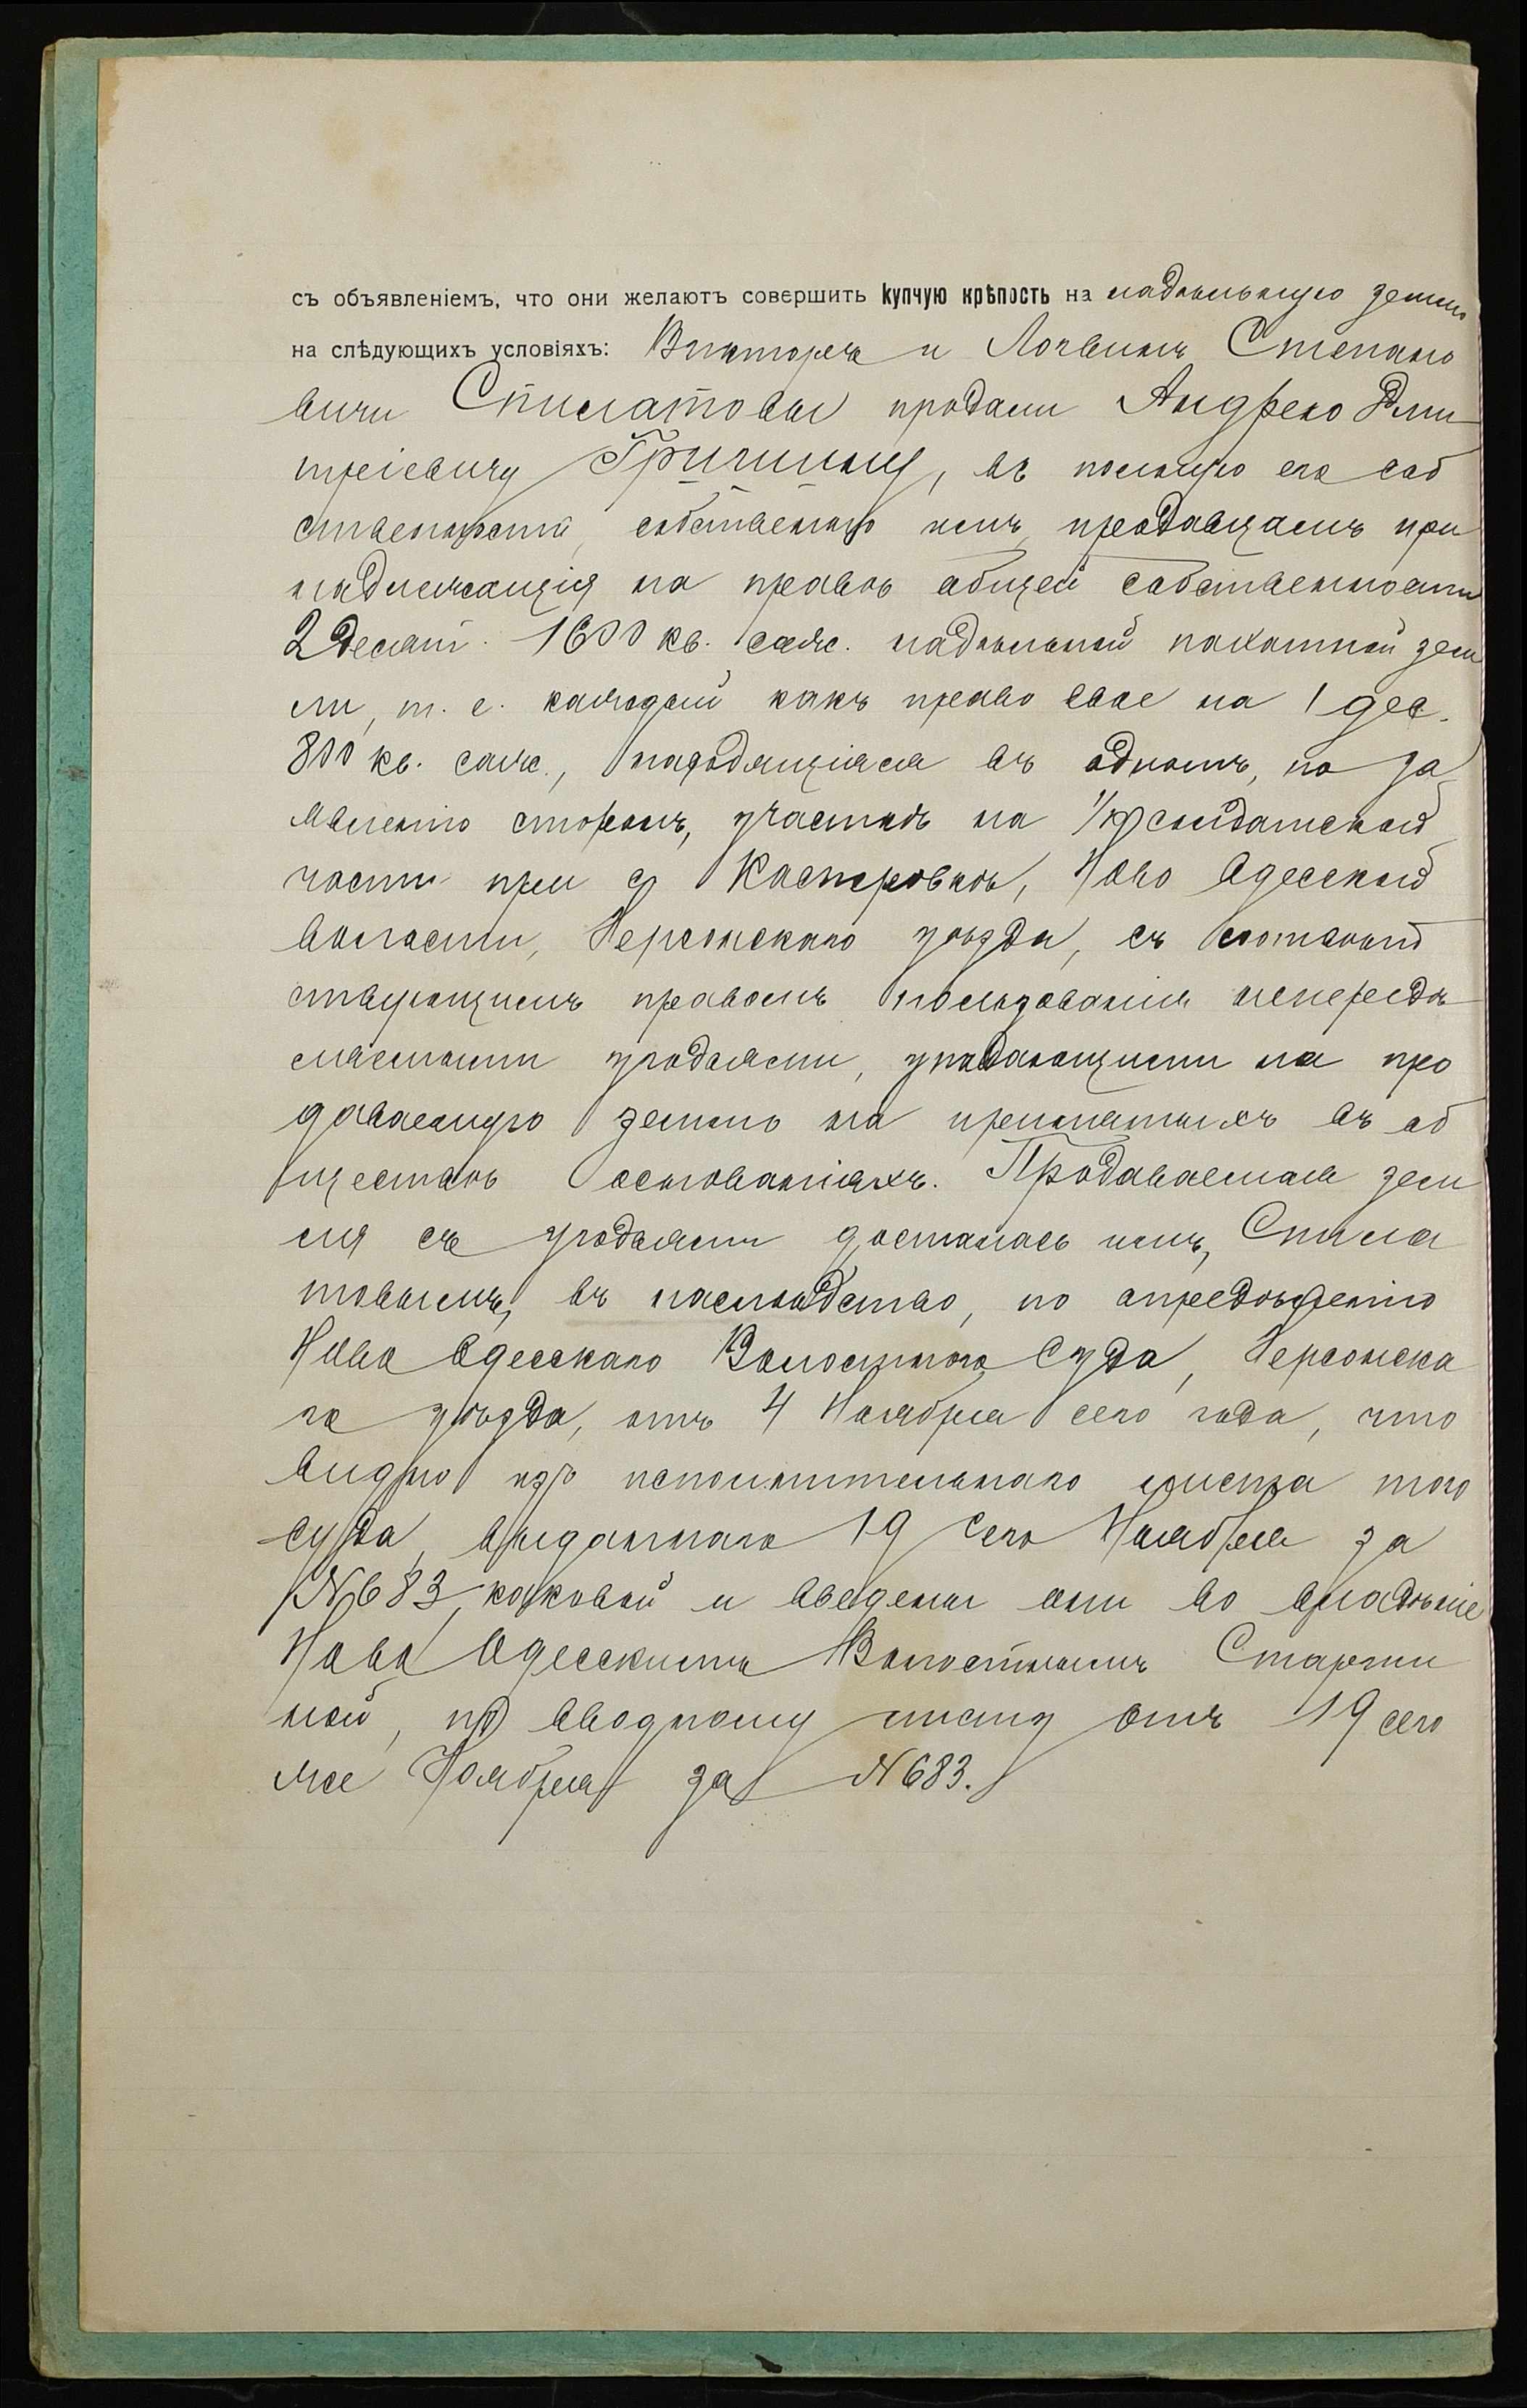 съ объявленіемъ, что они желаютъ совершить купчую крѣпость на надѣльную землю
на слѣдующихъ условіяхъ: Викторъ и Логвинъ Степано
вичи Спилатовы продали Андрею Дми
тріевичу Гричину, въ полную его соб
ственность, собственно имъ, продавцамъ при
надлежащія на правѣ общей собственности
2 десят. 1600 кв. саж. надѣльной пахатной зем
ли, т. е. каждый какъ право свое на 1 дес.
800 кв. саж., находящіяся въ одномъ, по за
явленію сторонъ, участкѣ на солдатской
части при с. Касперовкѣ, Ново Одесской
волости, Херсонскаго уѣзда, съ соотвѣт
ствующимъ правомъ пользованія непередѣ
ляемыми угодьями, упадающими на про
даваемую землю на принятыхъ въ об
ществѣ основаніяхъ. Продаваемая зем
ля съ угодьями досталась имъ, Спила
товымъ, въ наслѣдство, по опредѣленію
Ново Одесскаго Волостного Суда, Херсонска
го уѣзда, отъ 4 Ноября сего года, что
видно изъ исполнительнаго листа того
суда, выданнаго 19 сего Ноября за
№683, каковой и введены они во владѣніе
Ново Одесскимъ Волостнымъ Старши
ной, по вводному листу отъ 19 сего
же Ноября за №683.